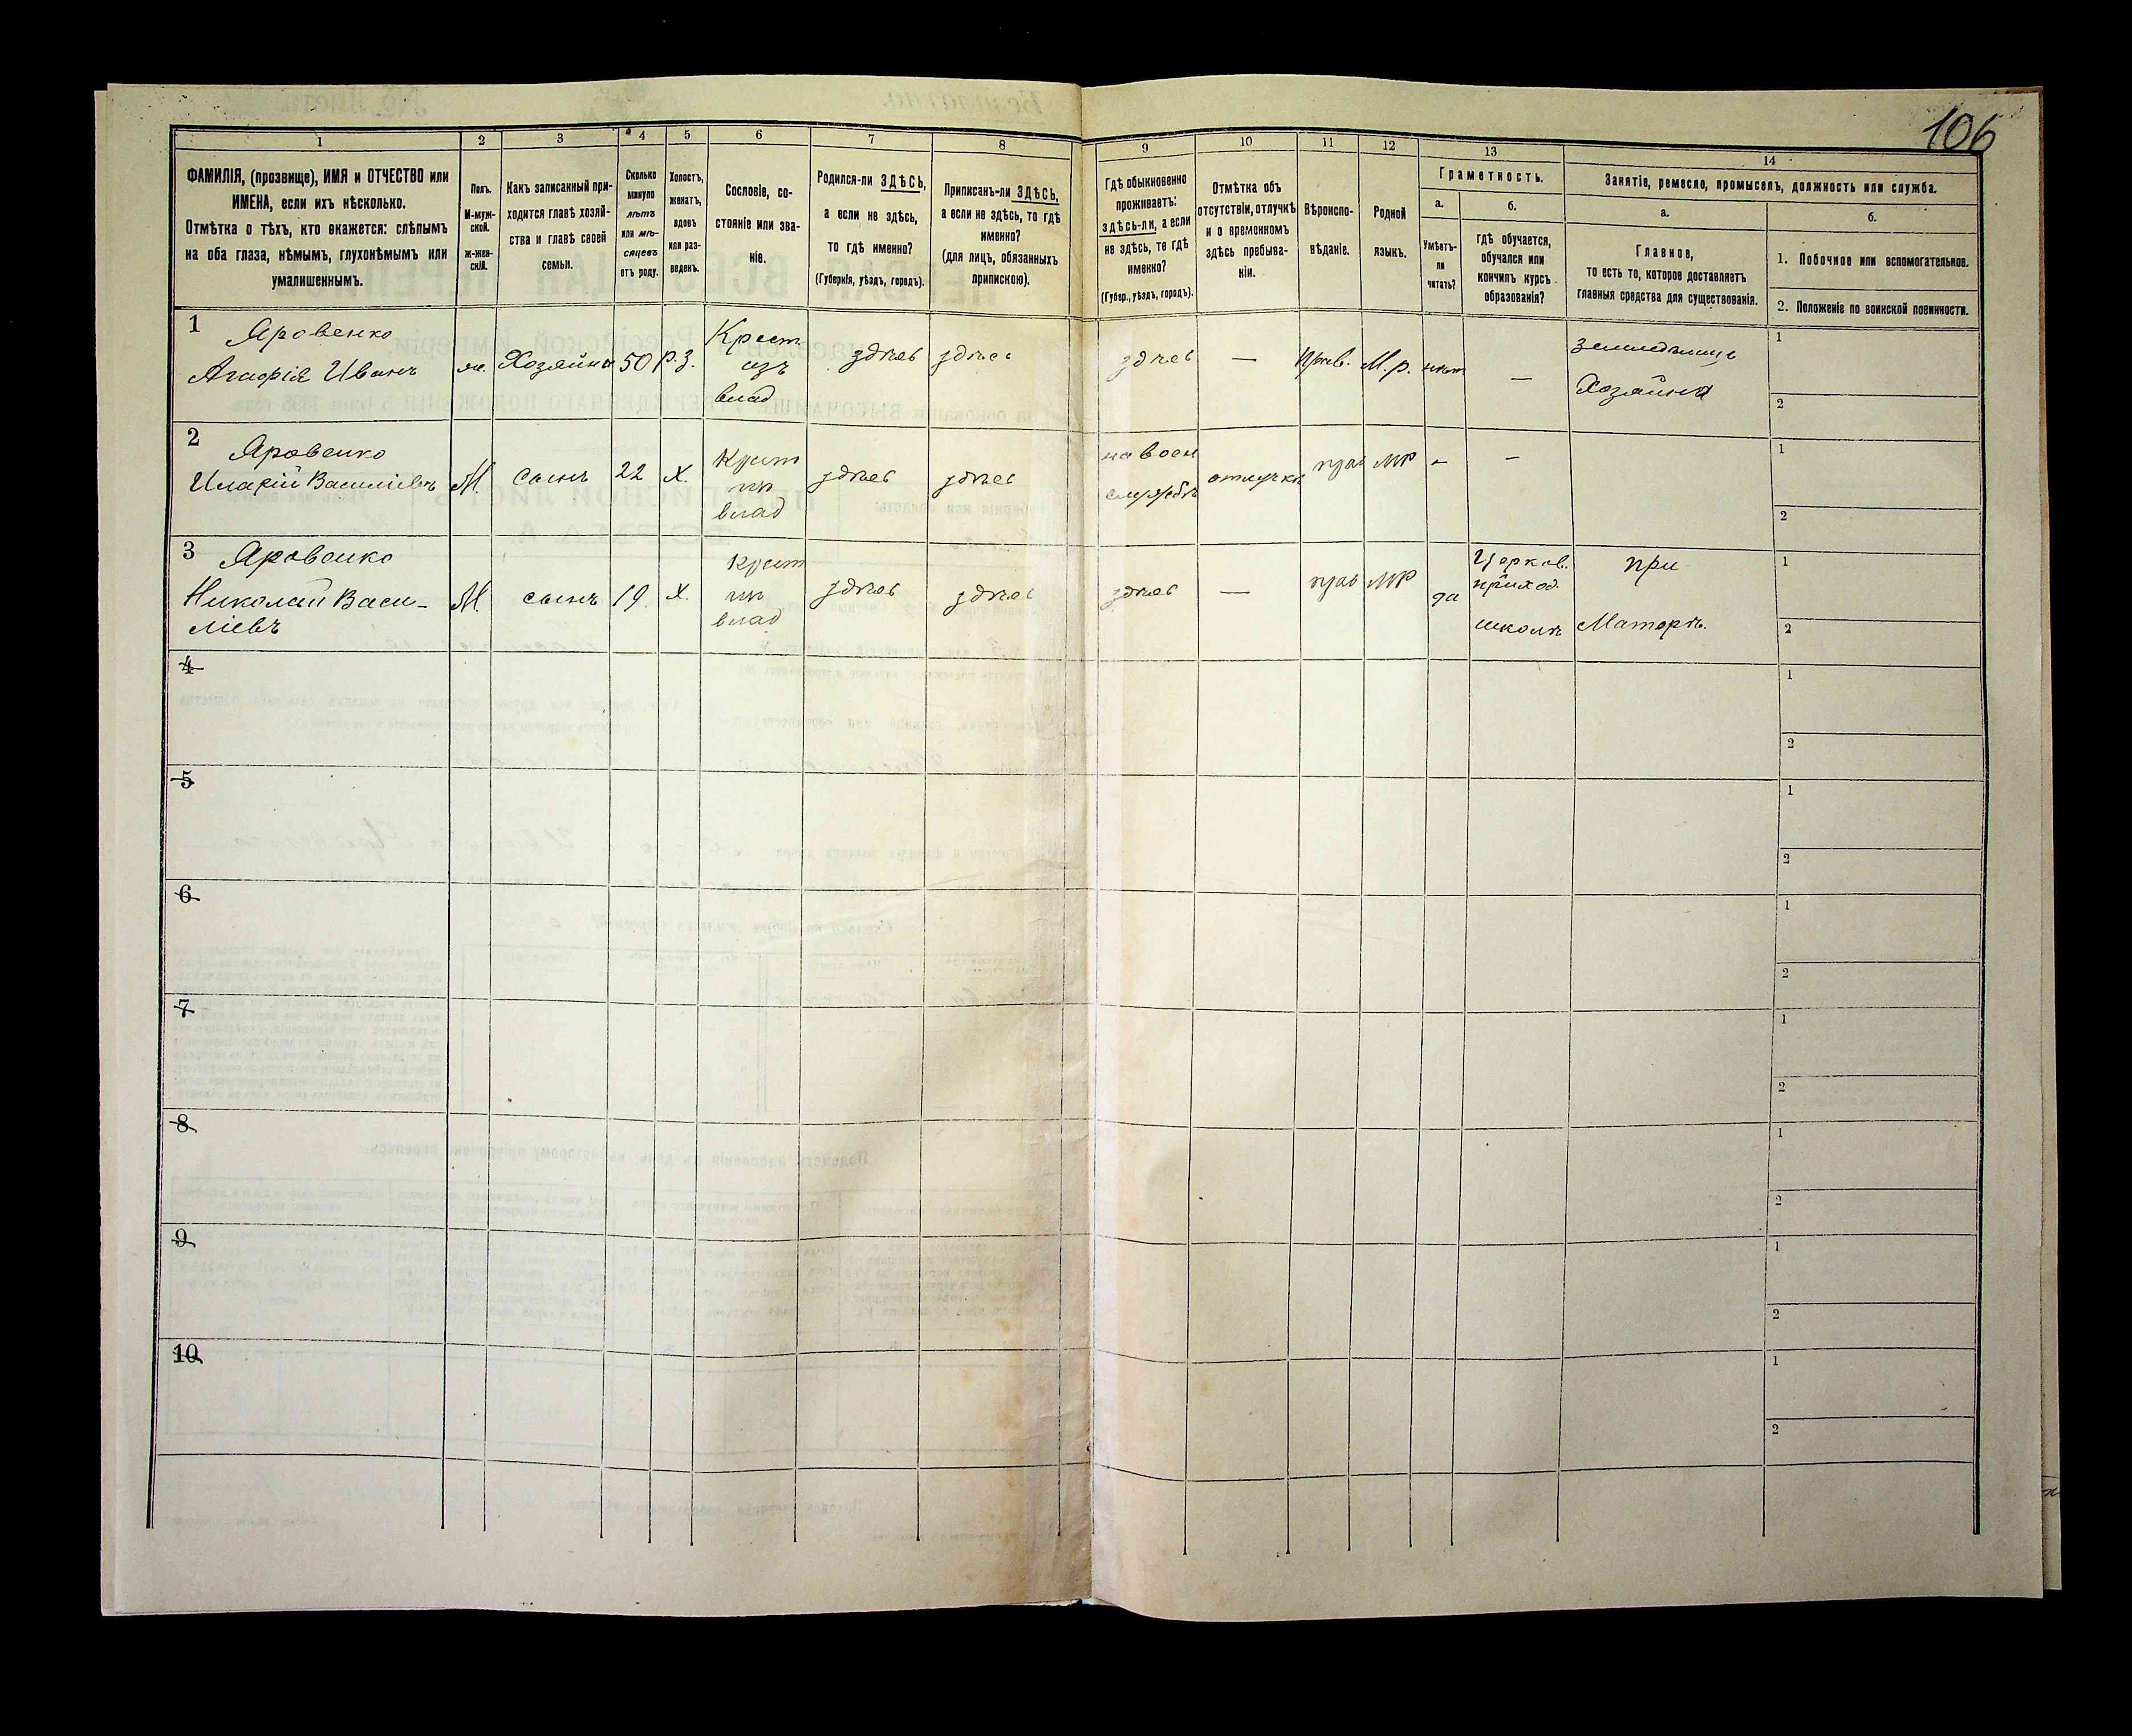 106
1
2
3
4
5
6
7
8
9
10
11
12
13
14
ФАМИЛІЯ, (прозвище), ИМЯ и ОТЧЕСТВО или
ИМЕНА, если ихъ нѣсколько.
Отмѣтка о тѣхъ, кто окажется: слѣпымъ
на оба глаза, нѣмымъ, глухонѣмымъ или
умалишеннымъ.
Полъ.
М-муж-
ской.
Ж-жен-
скій.
Какъ записанный при-
ходится главѣ хозяй-
ства и главѣ своей
семьи.
Сколько
минуло
лѣтъ
или мѣ-
сяцевъ
отъ роду.
Холостъ,
женатъ,
вдовъ
или раз-
веденъ.
Сословіе, со-
стояніе или зва-
ніе.
Родился-ли ЗДѢСЬ,
а если не здѣсь,
то гдѣ именно?
(Губернія, уѣздъ, городъ).
Приписанъ-ли ЗДѢСЬ,
а если не здѣсь, то гдѣ
именно?
(для лицъ, обязанныхъ
припискою).
Гдѣ обыкновенно
проживаетъ:
здѣсь-ли, а если
не здѣсь, то гдѣ
именно?
(Губер., уѣздъ, городъ).
Отмѣтка объ
отсутствіи, отлучкѣ
и о временномъ
здѣсь пребыва-
ніи.
Вѣроиспо-
вѣданіе.
Родной
языкъ.
Грамотность.
а.
Умѣетъ-
ли
читать?
б.
гдѣ обучается,
обучался или
кончилъ курсъ
образованія?
Занятіе, ремесло, промыселъ, должность или служба.
а.
Главное,
то есть то, которое доставляетъ
главныя средства для существованія.
б.
1. Побочное или вспомогательное.
2. Положеніе по воинской повинности.
1
Яровенко
Агафія Иванъ
ж.
Хозяйка
50
Р.З.
Крест
изъ
влад
здѣсь
здѣсь
здѣсь
—
Прав.
М.р.
нѣт
—
земледѣлица
Хозяйка
1
2
2
Яровенко
Иларій Василіевъ
М.
сынъ
22
х.
Крест
влад
здѣсь
здѣсь
на воен
службѣ
отлучкѣ
прав
МР
–
–
1
2
3
Яровенко
Николай Васи-
ліевъ
М.
сынъ
19.
х.
крест
влад
здѣсь
здѣсь
здѣсь
—
прав
МР
да
Церков.
приход.
школѣ
при
Матерѣ.
1
2
4
1
2
5
1
2
6
1
2
7
1
2
8
1
2
9
1
2
10
1
2